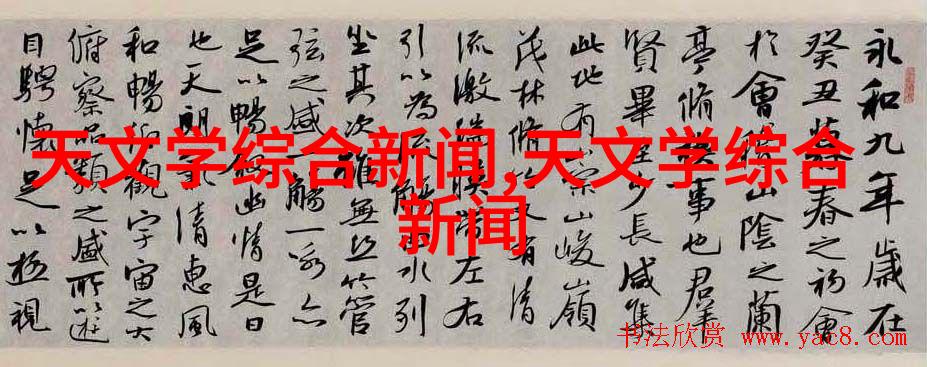 永和九年歲在
癸丑暮春之初會
於會稽山陰之蘭
亭脩禊事也羣
賢畢至少長咸集
此地有崇山峻嶺
茂林脩竹又有清
流激湍暎帶左右
引以為流觴曲水列
坐其次雖無絲竹管
弦之盛一觴一詠亦
足以暢敘幽情是日
也天朗氣清惠風
和暢仰觀宇宙之大
俯察品類之盛所以遊
目騁懷足以極視
天文学综合新闻,天文学综合
新闻
书法欣赏 www.yac8.com